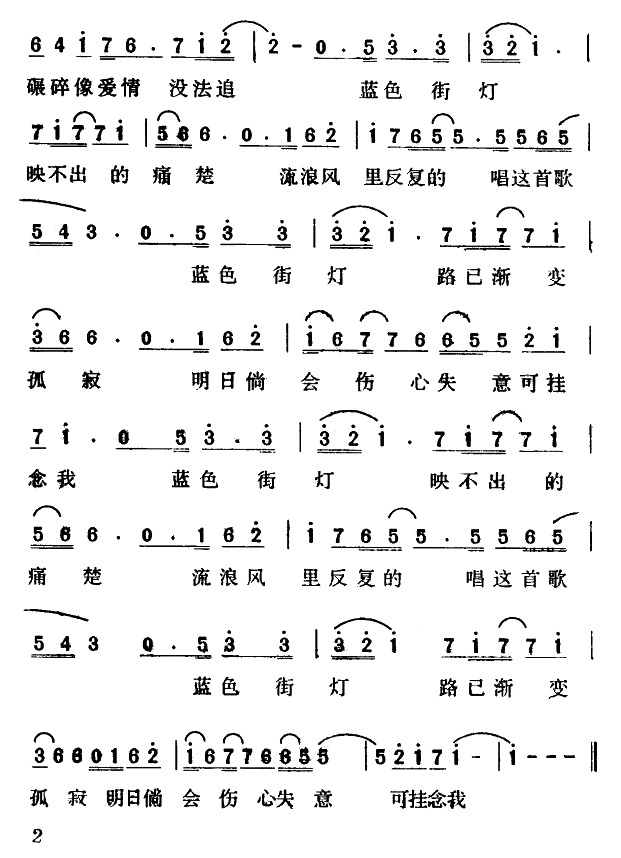 6 4 i 7 6 . 7 i 2 | 2 - 0 . 5 3 . 3 | 3 2 i . |
碾碎像爱情 没法追 蓝色街灯
7 i 7 7 i | 5 6 6 . 0 . 1 6 2 | i 7 6 5 5 . 5 5 6 5 |
映不出的痛楚 流浪风里反复的 唱这首歌
5 4 3 . 0 . 5 3 3 | 3 2 i . 7 i 7 7 i |
蓝色街灯 路已渐变
3 6 6 . 0 . 1 6 2 | i 6 7 7 6 6 5 5 2 i |
孤寂 明日倘会伤心失意可挂
7 i . 0 5 3 . 3 | 3 2 i . 7 i 7 7 i |
念我 蓝色街灯 映不出的
5 6 6 . 0 . 1 6 2 | i 7 6 5 5 . 5 5 6 5 |
痛楚 流浪风里反复的 唱这首歌
5 4 3 0 . 5 3 3 | 3 2 i 7 i 7 7 i |
蓝色街灯 路已渐变
3 6 6 0 1 6 2 | i 6 7 7 6 6 5 5 | 5 2 i 7 i - | i - - - ‖
孤寂 明日倘会伤心失意 可挂念我
2